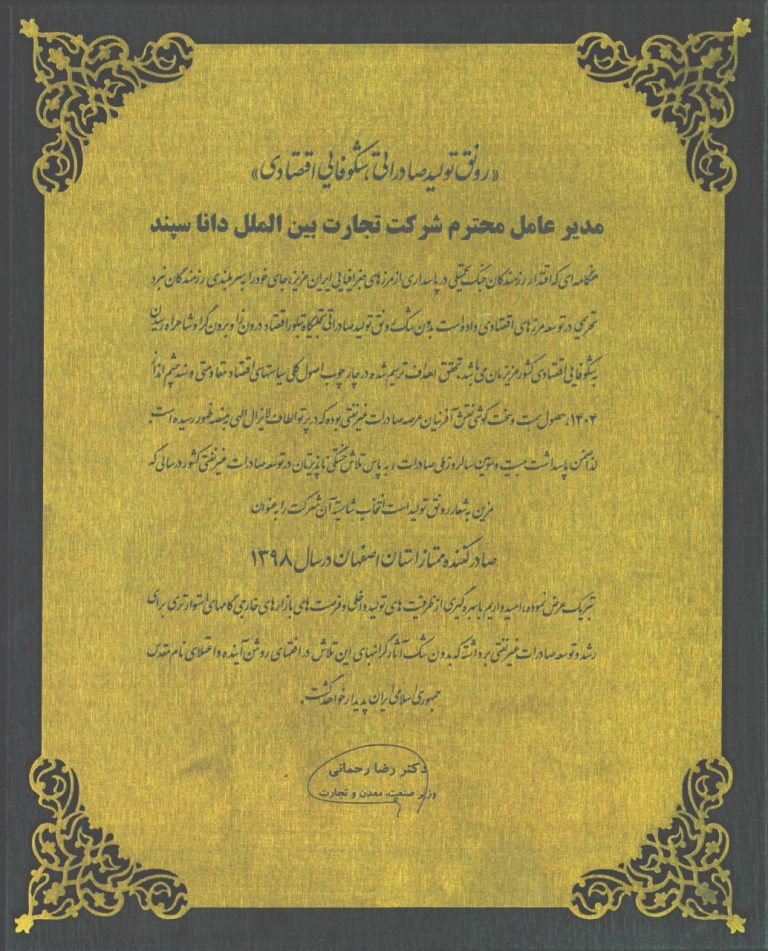 «رونق تولید صادراتی، شکوفایی اقتصادی»
مدیر عامل محترم شرکت تجارت بین الملل دانا سپند
هنگامه ای که اقتدار رزمندگان جنگ تحمیلی در پاسداری از مرزهای جغرافیایی ایران عزیز، جای خود را به سربلندی رزمندگان نبرد
تحریمی در توسعه مرزهای اقتصادی داده است بدون شک رونق تولید صادراتی تجلیگاه تبلور اقتصاد درون زا و برون گرا و شاهراه رسیدن
به شکوفایی اقتصادی کشور عزیزمان می باشد. تحقق اهداف ترسیم شده در چارچوب اصول کلی سیاستهای اقتصاد مقاومتی و سند چشم انداز
۱۴۰۴، حصول همت و سخت کوشی نقش آفرینان عرصه صادرات غیرنفتی بوده که در پرتو الطاف لایزال الهی به منصه ظهور رسیده است.
لذا ضمن پاسداشت بیست و سومین سالروز ملی صادرات، به پاس تلاش خستگی ناپذیرتان در توسعه صادرات غیرنفتی کشور در سالی که
مزین به شعار رونق تولید است انتخاب شایسته آن شرکت را بعنوان
صادرکننده ممتاز استان اصفهان در سال ۱۳۹۸
تبریک عرض نموده، امیدواریم با بهره گیری از ظرفیت های تولید داخلی و فرصت های بازارهای خارجی گامهای استوارتری برای
رشد و توسعه صادرات غیرنفتی برداشته که بدون شک آثار گرانبهای این تلاش در افقهای روشن آینده و اعتلای نام مقدس
جمهوری اسلامی ایران پدیدار خواهد گشت.
دکتر رضا رحمانی
وزیر صنعت، معدن و تجارت